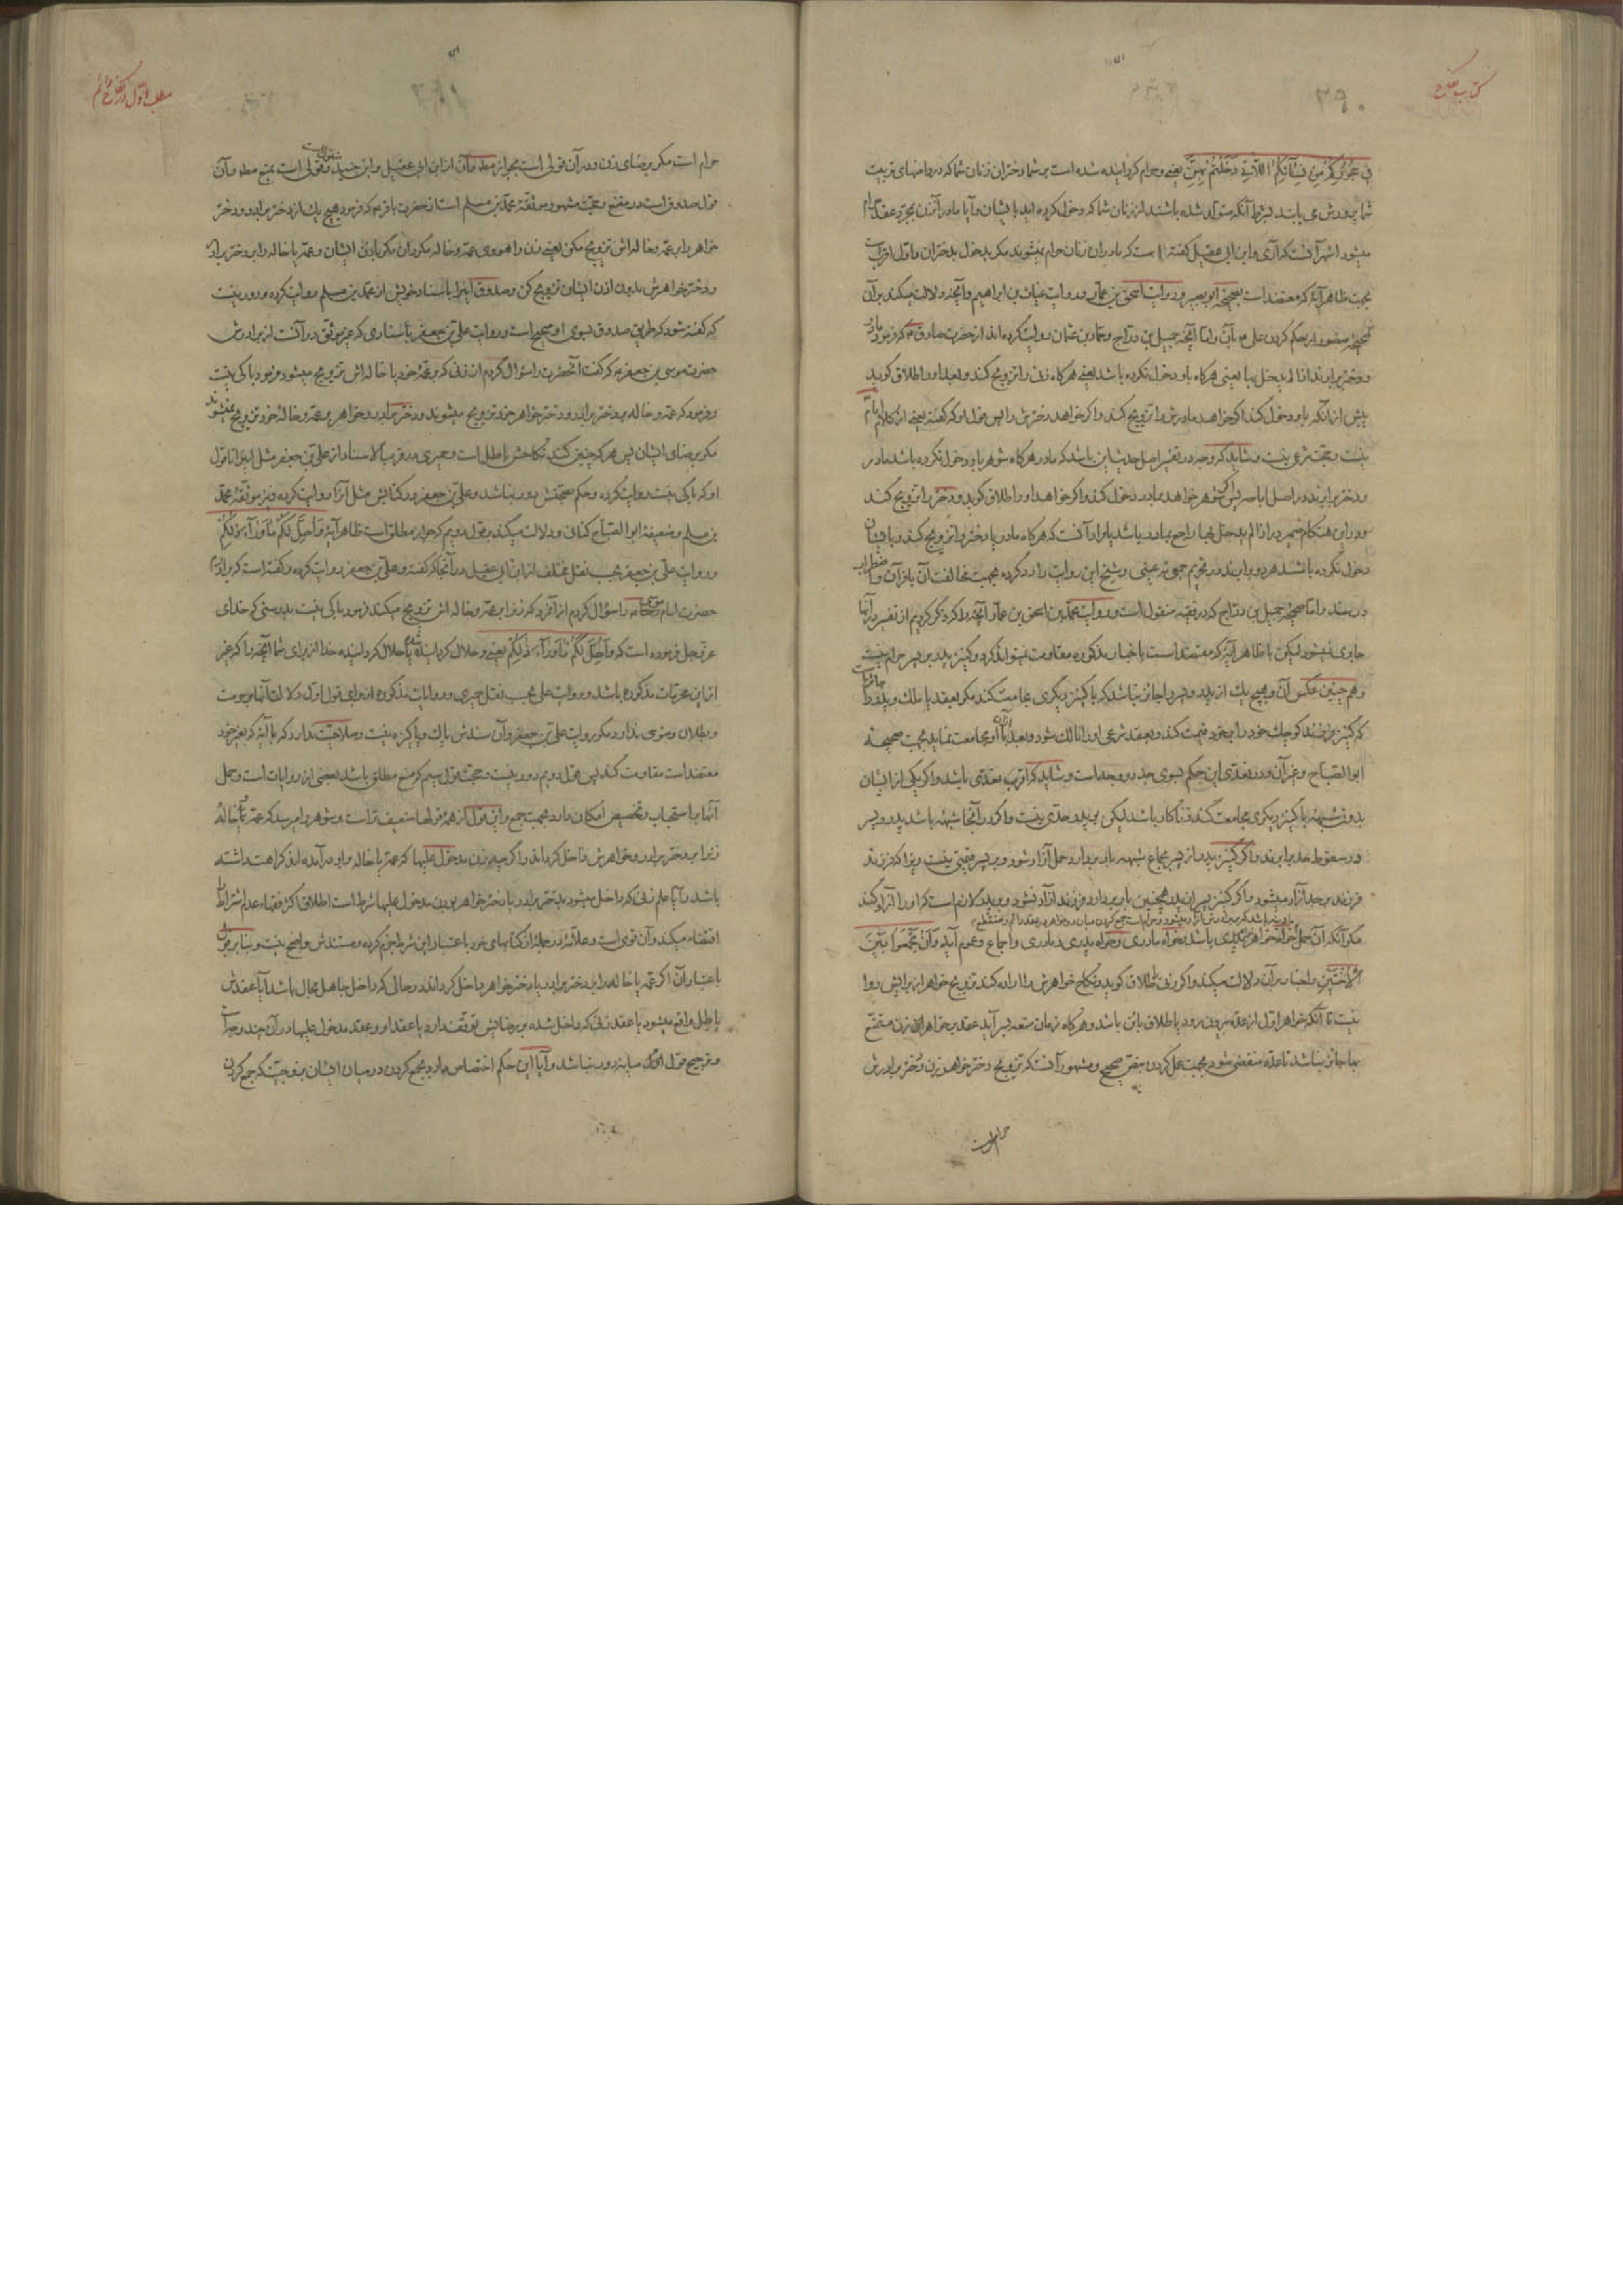 کتاب نکاح
فی حجورکم من نسائکم اللاتی دخلتم بهن یعنی و حرام گردانیده شده است بر شما دختران زنان شما که در دامنهای تربیت
شما پرورش می یابند بشرط آنکه متولد شده باشند از زنان شما که دخول کرده اید بایشان و آیا مادر آن زن بمجرد عقد حرام
میشود اشهر آنست که آری و ابن ابی عقیل گفته است که مادران زنان حرام نمیشوند مگر بدخول بدختران و اول اقربست
بجهت ظاهر آیه که معتضد است بصحیحه ابو بصیر و روایت اسحق بن عمار و روایت غیاث بن ابراهیم و آنچه دلالت میکند بر آن
صحیحه منصور از حکم کردن علی م بآن و اما آنچه جمیل بن دراج و حماد بن عثمان روایت کرده اند از حضرت صادق م که فرمود مادر
و دختر برابرند اذا لم یدخل بها یعنی هرگاه باو دخول نکرده باشد یعنی هرگاه زنی را تزویج کند و بعد او را طلاق گوید
پیش از آنکه باو دخول کند اگر خواهد مادرش را تزویج کند و اگر خواهد دخترش را پس قول او که گفته یعنی از کلام امام
نیست و حجت شرعی نیست و شاید که وجه در تفسیر اصل حدیث این باشد که مادر هرگاه شوهر باو دخول نکرده باشد مادر
و دختر برابرند در اصل اباحه پس اگر شوهر خواهد بمادر دخول کند و اگر خواهد او را طلاق گوید و دختر را تزویج کند
و در این هنگام ضمیر در اذا لم یدخل بها راجع بمادر باشد یا مراد آنست که هرگاه مادر یا دختر را تزویج کند و بایشان
دخول نکرده باشد هر دو برابرند در تحریم جمعی نه عینی و شیخ این روایت را رد کرده بجهت مخالفت آن با قرآن و اضطراب
در سند و اما صحیحه جمیل بن دراج که در فقیه منقول است و روایت محمد بن اسحق بن عمار آنچه را که ذکر کردیم از تفسیر در آنها
جاری نمیشود لیکن با ظاهر آیه که معتضد است باخبار مذکوره مقاومت نمیتواند کرد و کنیز پدر بر پسر حرام نیست
و هم چنین عکس آن و هیچ یک از پدر و پسر را جائز نباشد که با کنیز دیگری مجامعت کند مگر بعقد یا ملک و پدر را جائز است
که کنیز فرزند کوچک خود را بر خود قیمت کند و بعقد شرعی او را مالک شود و بعد از آن با او مجامعت نماید بجهت صحیحه
ابو الصباح و غیر آن و در تعدی این حکم بسوی جد دو وجه است و شاید که اقرب تعدی باشد و اگر یکی از ایشان
بدون شبهه با کنیز دیگری مجامعت کند زناکار باشد لیکن بر پدر حدی نیست و اگر در آنجا شبهه باشد پدر و پسر
در سقوط حد برابرند و اگر کنیز پدر از پسر بجماع شبهه بار بردارد حمل آزاد شود و بر پسر قیمتی نیست زیرا که فرزند
فرزند بر جد آزاد میشود و اگر کنیز پسر از پدر همچنین بار بردارد فرزند آزاد نشود و بر پدر لازم است که او را آزاد کند
مگر آنکه آن حمل دختر باشد که بر برادرش آزاد میشود و حرام است جمع کردن میان دو خواهر در عقد دائم و منقطع
خواه خواهر پدری باشد و خواه مادری و خواه پدری و مادری و اجماع و عموم آیه و ان تجمعوا بین
الاختین و اخبار بر آن دلالت میکند و اگر زنی را طلاق گوید و نکاح خواهرش را اراده کند تزویج خواهر از برایش روا
نیست تا آنکه خواهر اول از عده بیرون رود یا طلاق بائن باشد و هرگاه زمان متعه بسر آید عقد بر خواهر این زن متمتع
بها جائز نباشد تا عده منقضی شود بجهت عمل کردن بنص صحیح و مشهور آنست که تزویج دختر خواهر زن و دختر برادرش
حرام است
مطلب اول در نکاح دائم
حرام است مگر برضای زن و در آن قولی است بجواز مطلقا و آن از ابن ابی عقیل و ابن جنید منقولست و قولی است بمنع مطلقا و آن
قول صدوق است در مقنع و حجت مشهور موثقه محمد بن مسلم است از حضرت باقر م که فرمود هیچ یک از دختر برادر و دختر
خواهر را بر عمه و خاله اش تزویج مکن یعنی زن را هووی عمه و خاله مگردان مگر باذن ایشان و عمه یا خاله را بر دختر برادر
و دختر خواهرش بدون اذن ایشان تزویج کن و صدوق اینرا باسناد خویش از محمد بن مسلم روایت کرده و دور نیست
که گفته شود که طریق صدوق بسوی او صحیح است و روایت علی بن جعفر باسنادی که غیر موثق در آنست از برادرش
حضرت موسی بن جعفر م که گفت آنحضرت را سؤال کردم از زنی که بر عمه خود یا خاله اش تزویج میشود فرمود باکی نیست
و فرمود که عمه و خاله بر دختر برادر و دختر خواهر خود تزویج میشوند و دختر برادر و خواهر بر عمه و خاله خود تزویج نمیشوند
مگر برضای ایشان پس هر که چنین کند نکاحش باطل است و حمیری در قرب الاسناد از علی بن جعفر مثل اینرا تا قول
او که باکی نیست روایت کرده و حکم بصحتش دور نباشد و علی بن جعفر در کتابش مثل آنرا روایت کرده و نیز موثقه محمد
بن مسلم و ضعیفه ابو الصباح کنانی و دلالت میکند بر قول دویم که جواز مطلق است ظاهر آیه و احل لکم ما وراء ذلکم
و روایت علی بن جعفر بحسب نقل مختلف از ابن ابی عقیل در آنجا که گفته و علی بن جعفر روایت کرده و گفته است که برادرم
حضرت امام موسی کاظم را سؤال کردم از مردی که زن را بر عمه و خاله اش تزویج میکند فرمود باکی نیست بدرستی که خدای
عز و جل فرموده است که و احل لکم ما وراء ذلکم یعنی و حلال گردانیده شده یا حلال گردانیده خدا از برای شما آنچه را که غیر
از این محرمات مذکوره باشد و روایت علی بحسب نقل حمیری و روایات مذکوره از برای قول اول دلالت آنها بر حرمت
و بطلان وضوحی ندارد مگر روایت علی بن جعفر و آن سندش پاک و پاکیزه نیست و صلاحیت ندارد که با آیه که بغیر خود
معتضد است مقاومت کند پس قول دویم دور نیست و حجت قول سیم که منع مطلق باشد بعضی از روایات است و حمل
آنها باستحباب و تخصیص امکان دارد بجهت جمع و این قول از همه قولها ضعیف تر است و شوهر را میرسد که عمه یا خاله
زن را بر دختر برادر و خواهرش داخل گرداند و اگر چه زن مدخول علیها که عمه یا خاله بر او در آمده اند کراهت داشته
باشد و آیا علم زنی که داخل میشود بدختر برادر یا دختر خواهر بودن مدخول علیها شرط است اطلاق اکثر فقهاء عدم اشتراط را
اقتضاء میکند و آن قوی است و علامه در جمله از کتابهای خود باعتبار این شرط جزم کرده و مستندش واضح نیست و بنا بر قول
باعتبار آن اگر عمه یا خاله را بر دختر برادر یا دختر خواهر داخل گرداند در حالی که داخل جاهل بحال باشد آیا عقدش
باطل واقع میشود یا عقد زنی که داخل شده بر رضایش توقف دارد یا عقد او و عقد مدخول علیها در آن چند وجه است
و ترجیح قول اول میانه دور نباشد و آیا این حکم اختصاص دارد بجمع کردن در میان ایشان بزوجیت که جمع کردن